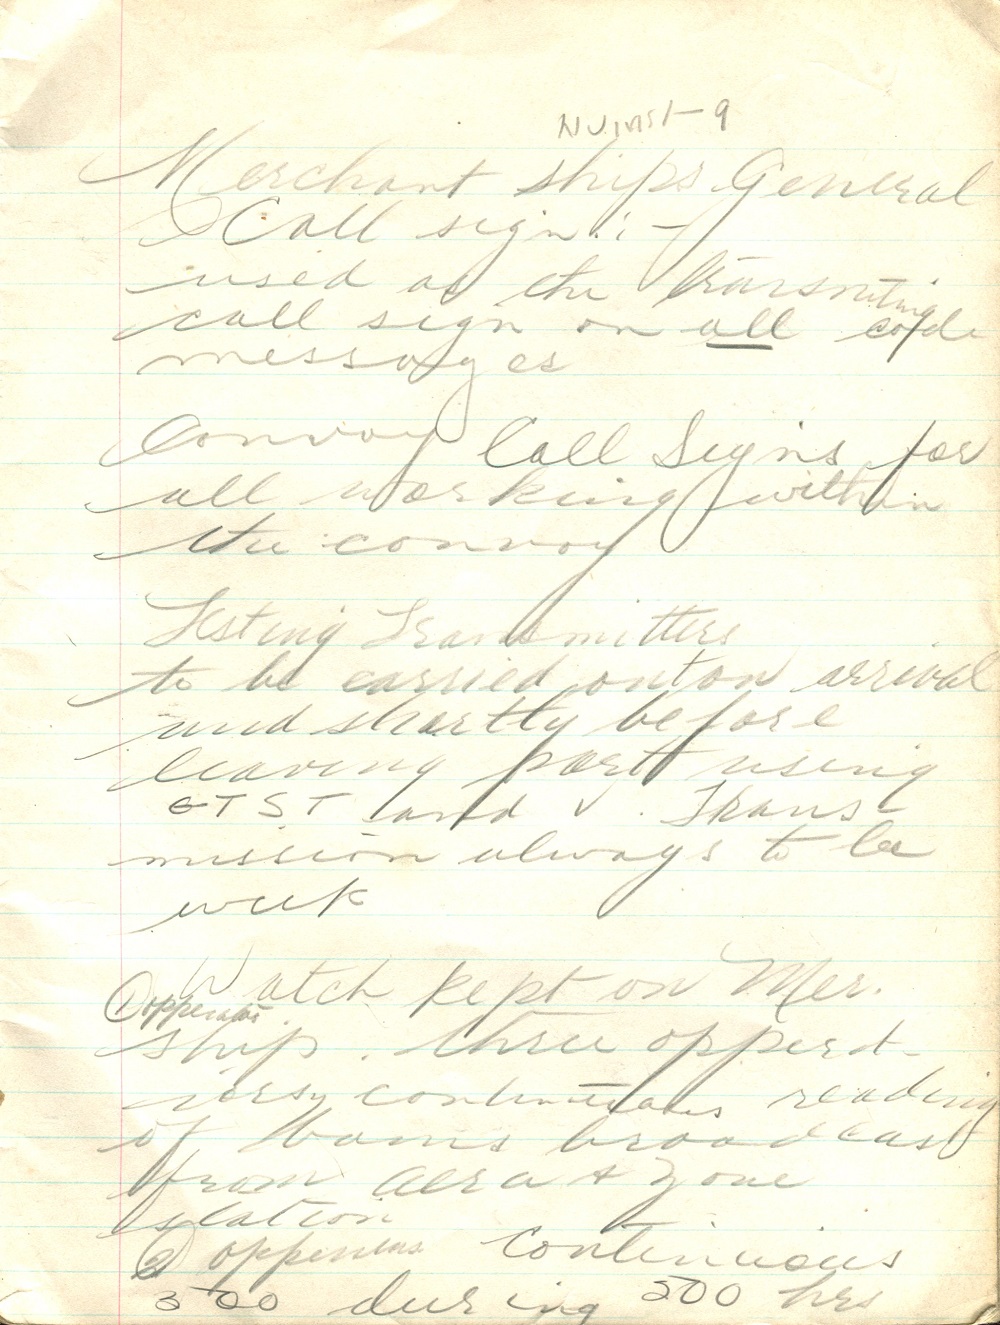 Merchant ships General
Call sign :-
used as the transmitting
call sign on all code
messages
Convoy Call Signs for
all working within
the convoy
Testing Transmitters
to be carried out on arrival
and shortly before
leaving port using
TST and V. Trans-
mission always to be
weak
Watch kept on Mer.
ship. three opperat-
continuous reading
of bams broadcast
from aera & zone
station
continuous
500 during 500 hrs